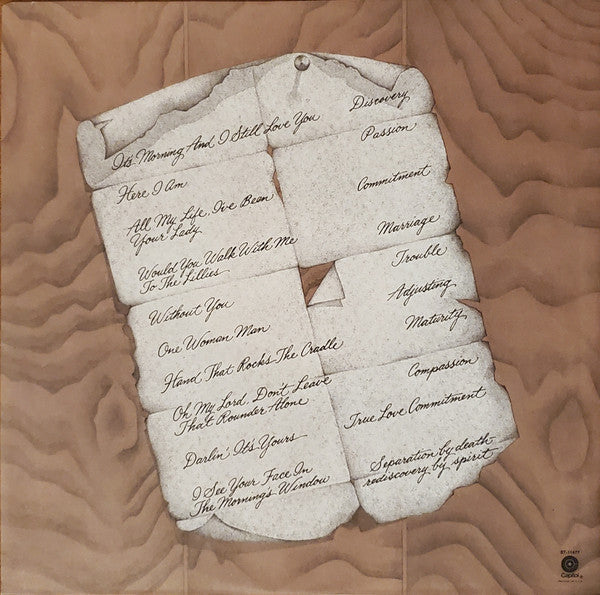 It's Morning And I Still Love You Discovery
Here I Am Passion
All My Life, I've Been Commitment
Your Lady
Would You Walk With Me Marriage
To The Lillies
Without You Trouble
One Woman Man Adjusting
Hand That Rocks The Cradle Maturity
Oh My Lord, Don't Leave Compassion
That Rounder Alone
Darlin' It's Yours True Love Commitment
I See Your Face In Separation by death
The Morning's Window rediscovery by spirit
ST-11477
Capitol